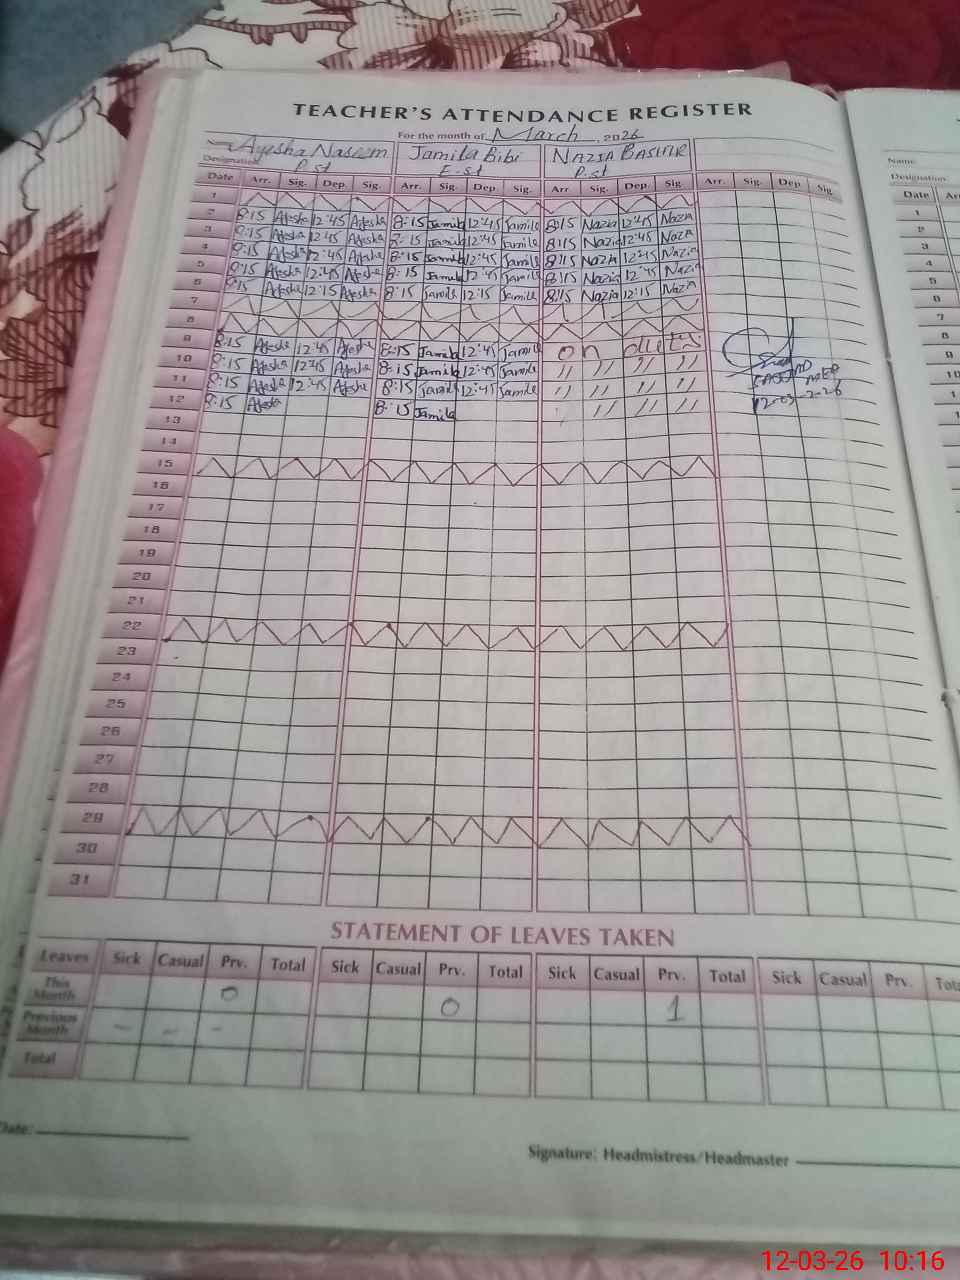 TEACHER'S ATTENDANCE REGISTER
For the month of March, 2026
Name Ayesha Naseem Jamila Bibi NAZIA BASHIR
Designation P.st E-st P.st
Date Arr. Sig. Dep. Sig. Arr. Sig. Dep. Sig. Arr Sig. Dep. Sig. Arr. Sig. Dep. Sig.
1
2 8:15 Ayesha 12:45 Ayesha 8:15 Jamila 12:45 Jamila 8:15 Nazia 12:45 Nazia
3 8:15 Ayesha 12:45 Ayesha 8:15 Jamila 12:45 Jamila 8:15 Nazia 12:45 Nazia
4 8:15 Ayesha 12:45 Ayesha 8:15 Jamila 12:45 Jamila 8:15 Nazia 12:45 Nazia
5 8:15 Ayesha 12:45 Ayesha 8:15 Jamila 12:45 Jamila 8:15 Nazia 12:45 Nazia
6 8:15 Ayesha 12:15 Ayesha 8:15 Jamila 12:15 Jamila 8:15 Nazia 12:15 Nazia
7
8
9 8:15 Ayesha 12:45 Ayesha 8:15 Jamila 12:45 Jamila on duty
10 8:15 Ayesha 12:45 Ayesha 8:15 Jamila 12:45 Jamila // // // //
11 8:15 Ayesha 12:45 Ayesha 8:15 Jamila 12:45 Jamila // // // //
12 8:15 Ayesha 8:15 Jamila // // //
12-03-2026
13
14
15
16
17
18
19
20
21
22
23
24
25
26
27
28
29
30
31
STATEMENT OF LEAVES TAKEN
Leaves Sick Casual Prv. Total Sick Casual Prv. Total Sick Casual Prv. Total Sick Casual Prv.
This Month 0 0 1
Previous Month - - -
Total
Date:
Signature: Headmistress/Headmaster
Name:
Designation:
Date
1
2
3
4
5
6
7
8
9
10
12-03-26 10:16